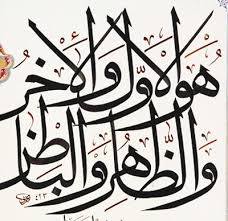 هُوَ الأَوَّلُ وَالآخِرُ
وَالظَّاهِرُ وَالبَاطِنُ